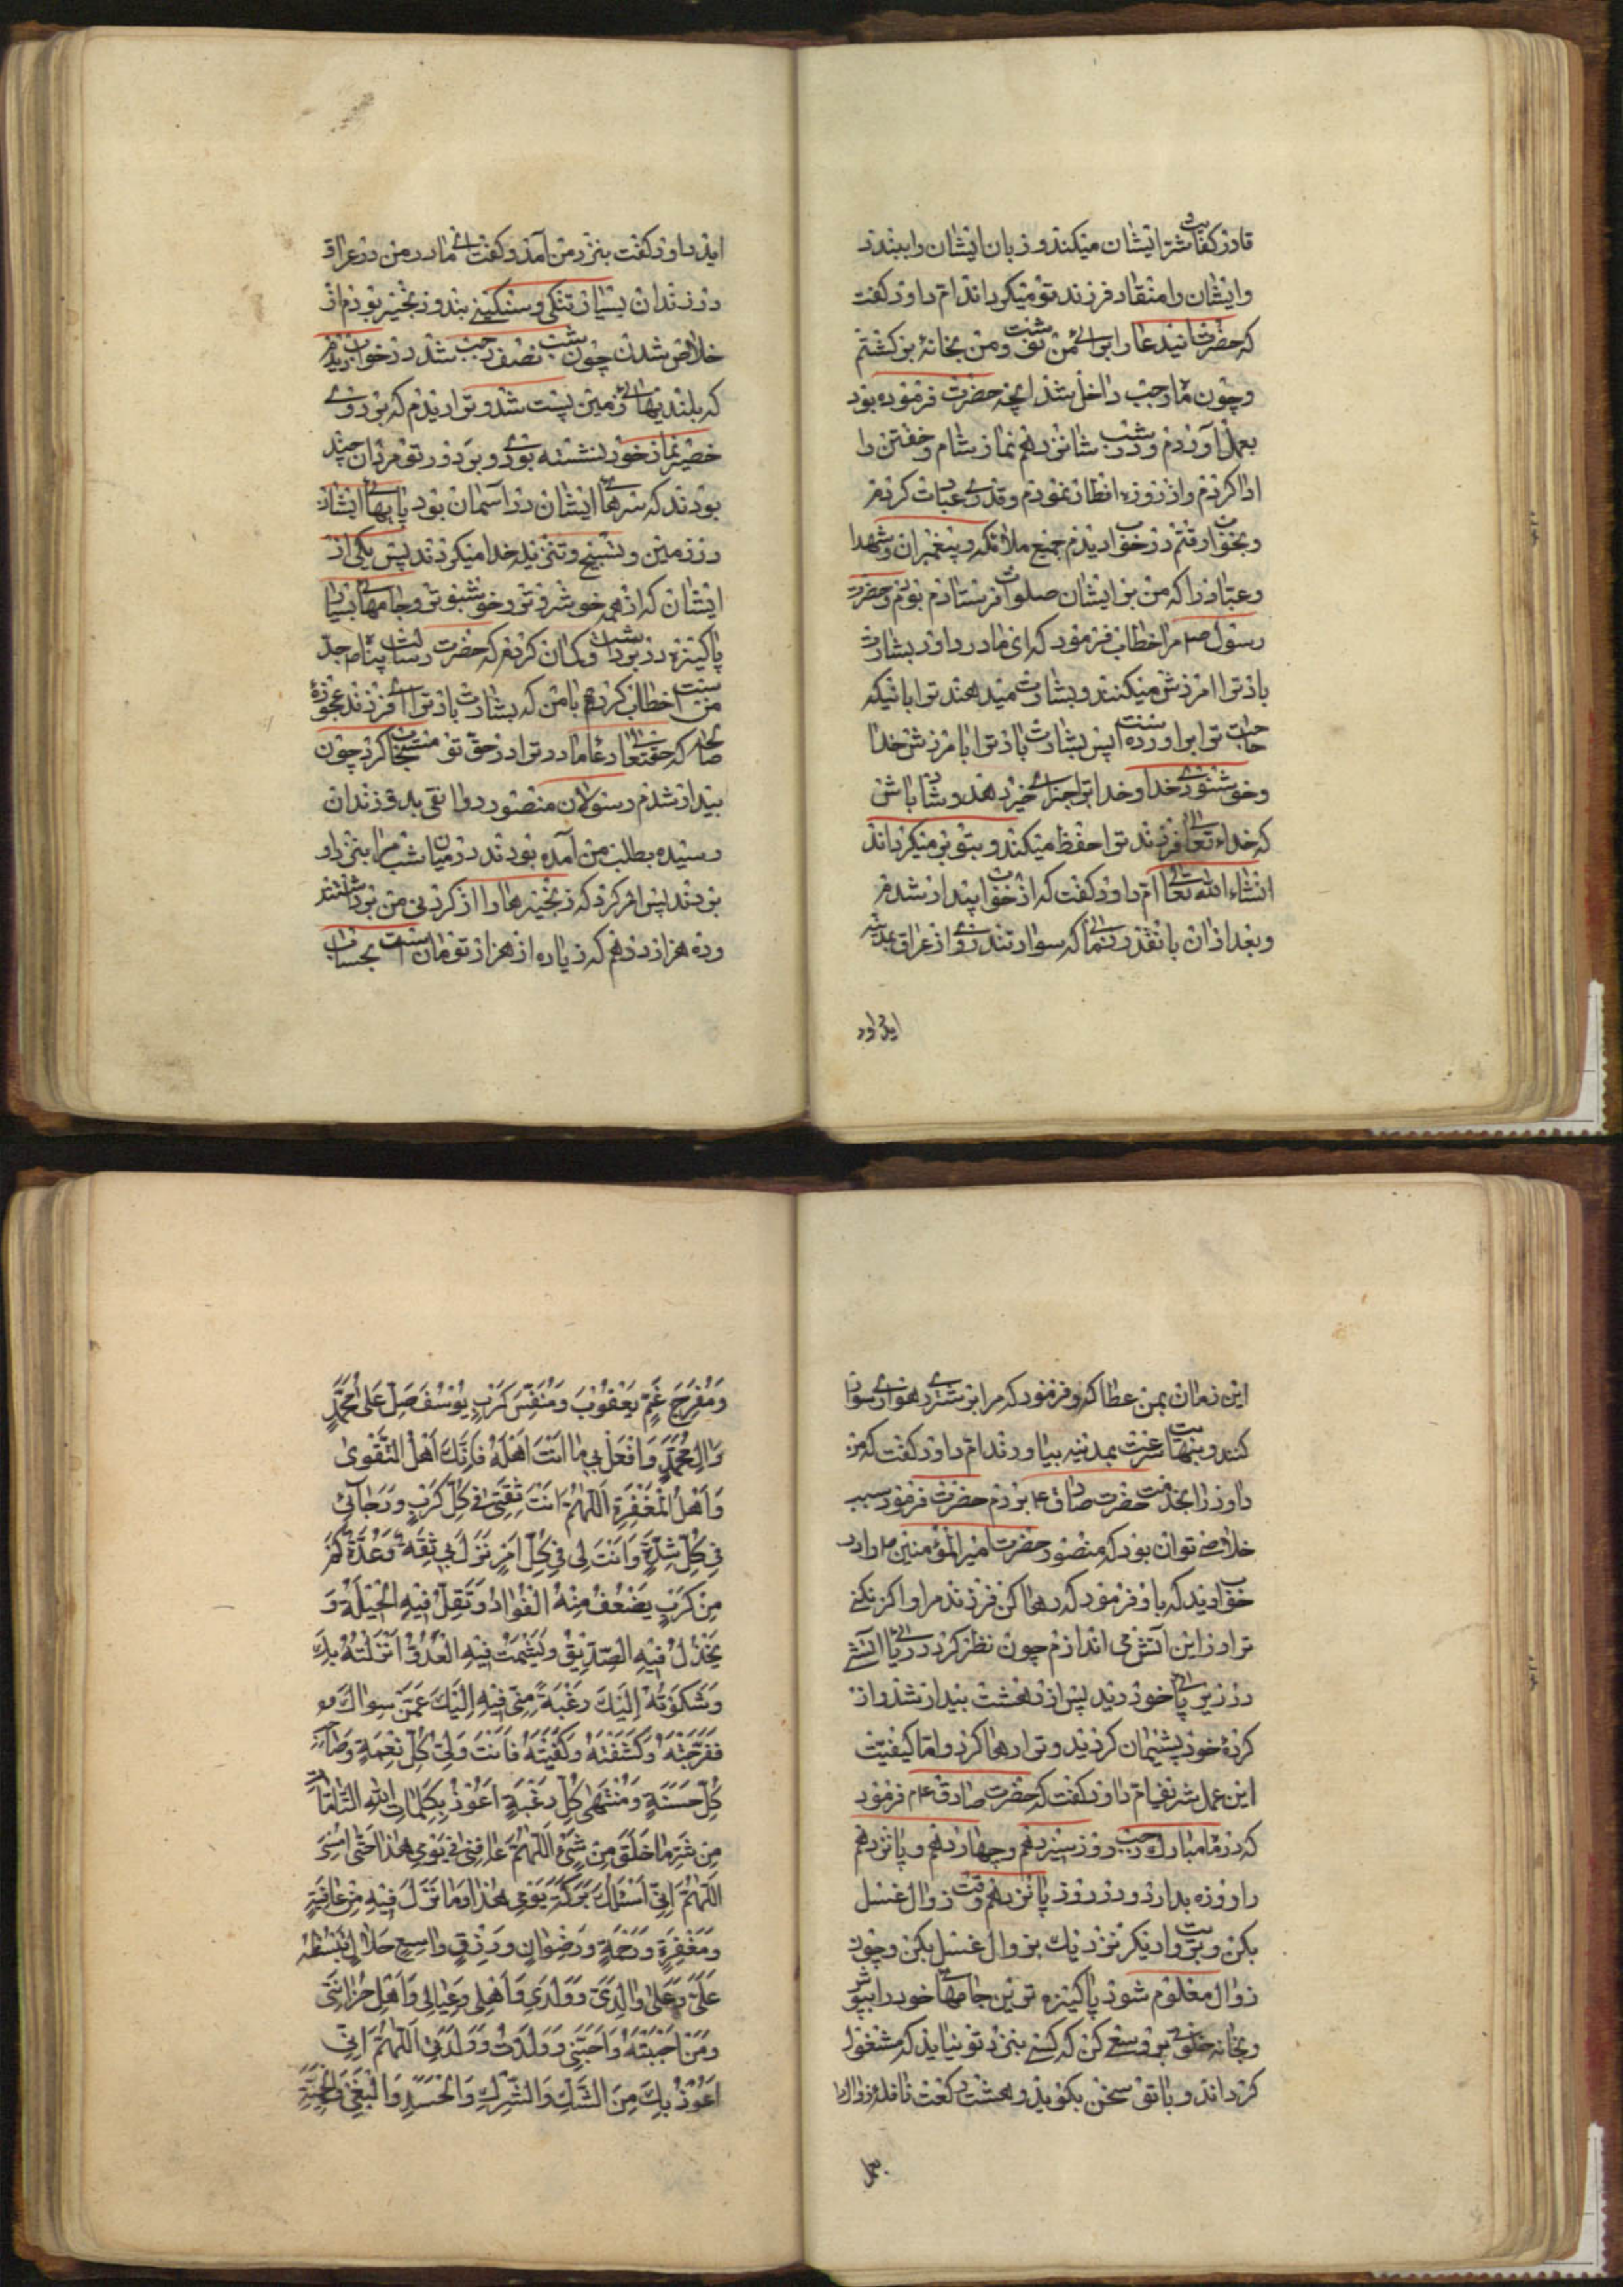 قادر كفايت شر ايشان ميكند و زبان ايشان را ببندد
و ايشان را منقاد فرزند تو ميكرداند ام داود كفت
كه حضرت اين دعا را براى من نوشت و من بخانه بركشتم
و چون ماه رجب داخل شد آنچه حضرت فرموده بود
بعمل آوردم و در شب شانزدهم نماز شام و خفتن را
ادا كردم و از روزه افطار نمودم و قدرى عبادت كردم
و بخواب رفتم در خواب ديدم جميع ملائكه و پيغمبران و شهدا
و عباد را كه من بر ايشان صلوات فرستاده بودم و حضرت
رسول ص مرا خطاب فرمود كه اى مادر داود بشارت
باد ترا آمرزش ميكنند و بشارت ميدهند ترا بانيكه
حاجت ترا برآورده است پس بشارت باد ترا بآمرزش خدا
و خوشنودى خدا و خدا ترا جزاى خير دهد و شاد باش
كه خداء تعالى فرزند ترا حفظ ميكند و بتو بر ميكرداند
انشاء الله تعالى ام داود كفت كه از خواب بيدار شدم
و بعد از آن بانقدر زمانى كه سوار تندروى از عراق بمدينه
ايد داود
ايد داود كفت بنزد من آمد و كفت اى مادر من در عراق
در زندان بسيار تنكى و سنكينى بند و زنجير بودم از
خلاص شدن چون شب نصف رجب شد در خواب ديدم
كه بلنديهاى زمين پست شد و ترا ديدم كه بر روى
حصير نماز خود نشسته بودى و بر دور تو مردان چند
بودند كه سرهاى ايشان در آسمان بود پايهاى ايشان
در زمين و تسبيح و تنزيه خدا ميكردند پس يكى از
ايشان كه از همه خوشروتر و خوشبوتر و جامهاى بسيار
پاكيزه در برداشت و كمان كردم كه حضرت رسالت پناه جد
من است خطاب كرد بامن كه بشارت باد ترا اى فرزند عجوزه
صالحه كه حقتعالى دعاء مادر ترا در حق تو مستجاب كرد چون
بيدار شدم رسولان منصور دوانقى بدر زندان
رسيده بطلب من آمده بودند در ميان شب مرا بنزد او
بردند پس امر كرد كه زنجيرها را از كردن من برداشتند
و ده هزار درهم كه زياده از هزار تومان است بحساب
اين زمان بمن عطا كرد و فرمود كه مرا بر شترى رهوارى سوار
كنند و بنهايت سرعت بمدينه بياورند ام داود كفت كه من
داود را بخدمت حضرت صادق ع بردم حضرت فرمود سبب
خلاصى تو آن بود كه منصور حضرت امير المؤمنين ع را در
خواب ديد كه باو فرمود كه رها كن فرزند مرا و اكر نكنى
ترا در اين آتش مى اندازم چون نظر كرد درياى آتش
در زير پاى خود ديد پس از دهشت بيدار شد و از
كردهٔ خود پشيمان كرديد و ترا رها كرد و اما كيفيت
اين عمل شريف ام داود كفت كه حضرت صادق ع م فرمود
كه در ماه مبارك رجب روز سيزدهم و چهاردهم و پانزدهم
را روزه بدار و در روز پانزدهم وقت زوال غسل
بكن و بروايت ديكر نزديك بزوال غسل بكن و چون
زوال معلوم شود پاكيزه ترين جامهاى خود را بپوش
و بخانه خلوتى برو و سعى كن كه كسى بنزد تو نيايد كه مشغول
كرداند و باتو سخن بكويد و هشت ركعت نافلهٔ زوال را
بعمل
وَمُفَرِّجَ غَمِّ يَعْقُوبَ وَمُنَفِّسَ كَرْبِ يُوسُفَ صَلِّ عَلى مُحَمَّدٍ
وَالِ مُحَمَّدٍ وَافْعَلْ بى ما اَنْتَ اَهْلُهُ فَاِنَّكَ اَهْلُ التَّقْوى
وَاَهْلُ الْمَغْفِرَةِ اَللّهُمَّ اَنْتَ ثِقَتى فى كُلِّ كَرْبٍ وَرَجائى
فى كُلِّ شِدَّةٍ وَاَنْتَ لى فى كُلِّ اَمْرٍ نَزَلَ بى ثِقَةٌ وَعُدَّةٌ كَمْ
مِنْ كَرْبٍ يَضْعُفُ مِنْهُ الْفُؤادُ وَتَقِلُّ فيهِ الْحيلَةُ وَ
يَخْذُلُ فيهِ الصَّديقُ وَيَشْمَتُ فيهِ الْعَدُوُّ اَنْزَلْتُهُ بِكَ
وَشَكَوْتُهُ اِلَيْكَ رَغْبَةً مِنّى فيهِ اِلَيْكَ عَمَّنْ سِواكَ
فَفَرَّجْتَهُ وَكَشَفْتَهُ وَكَفَيْتَهُ فَاَنْتَ وَلِىُّ كُلِّ نِعْمَةٍ وَصاحِبُ
كُلِّ حَسَنَةٍ وَمُنْتَهى كُلِّ رَغْبَةٍ اَعُوذُ بِكَلِماتِ اللهِ التّامّاتِ
مِنْ شَرِّ ما خَلَقَ مِنْ شَىْءٍ اَللّهُمَّ عافِنى فى يَوْمى هذا حَتّى اُمْسِىَ
اَللّهُمَّ اِنّى اَسْئَلُكَ بَرَكَةَ يَوْمى هذا وَما نَزَلَ فيهِ مِنْ عافِيَةٍ
وَمَغْفِرَةٍ وَرَحْمَةٍ وَرِضْوانٍ وَرِزْقٍ واسِعٍ حَلالٍ تَبْسُطُهُ
عَلَىَّ وَعَلى والِدَىَّ وَوَلَدى وَاَهْلى وَعِيالى وَاَهْلِ حُزانَتى
وَمَنْ اَحْبَبْتُهُ وَاَحَبَّنى وَوَلَدْتُ وَوَلَدَنى اَللّهُمَّ اِنّى
اَعُوذُ بِكَ مِنَ الشَّكِّ وَالشِّرْكِ وَالْحَسَدِ وَالْبَغْىِ وَالْحَمِيَّةِ